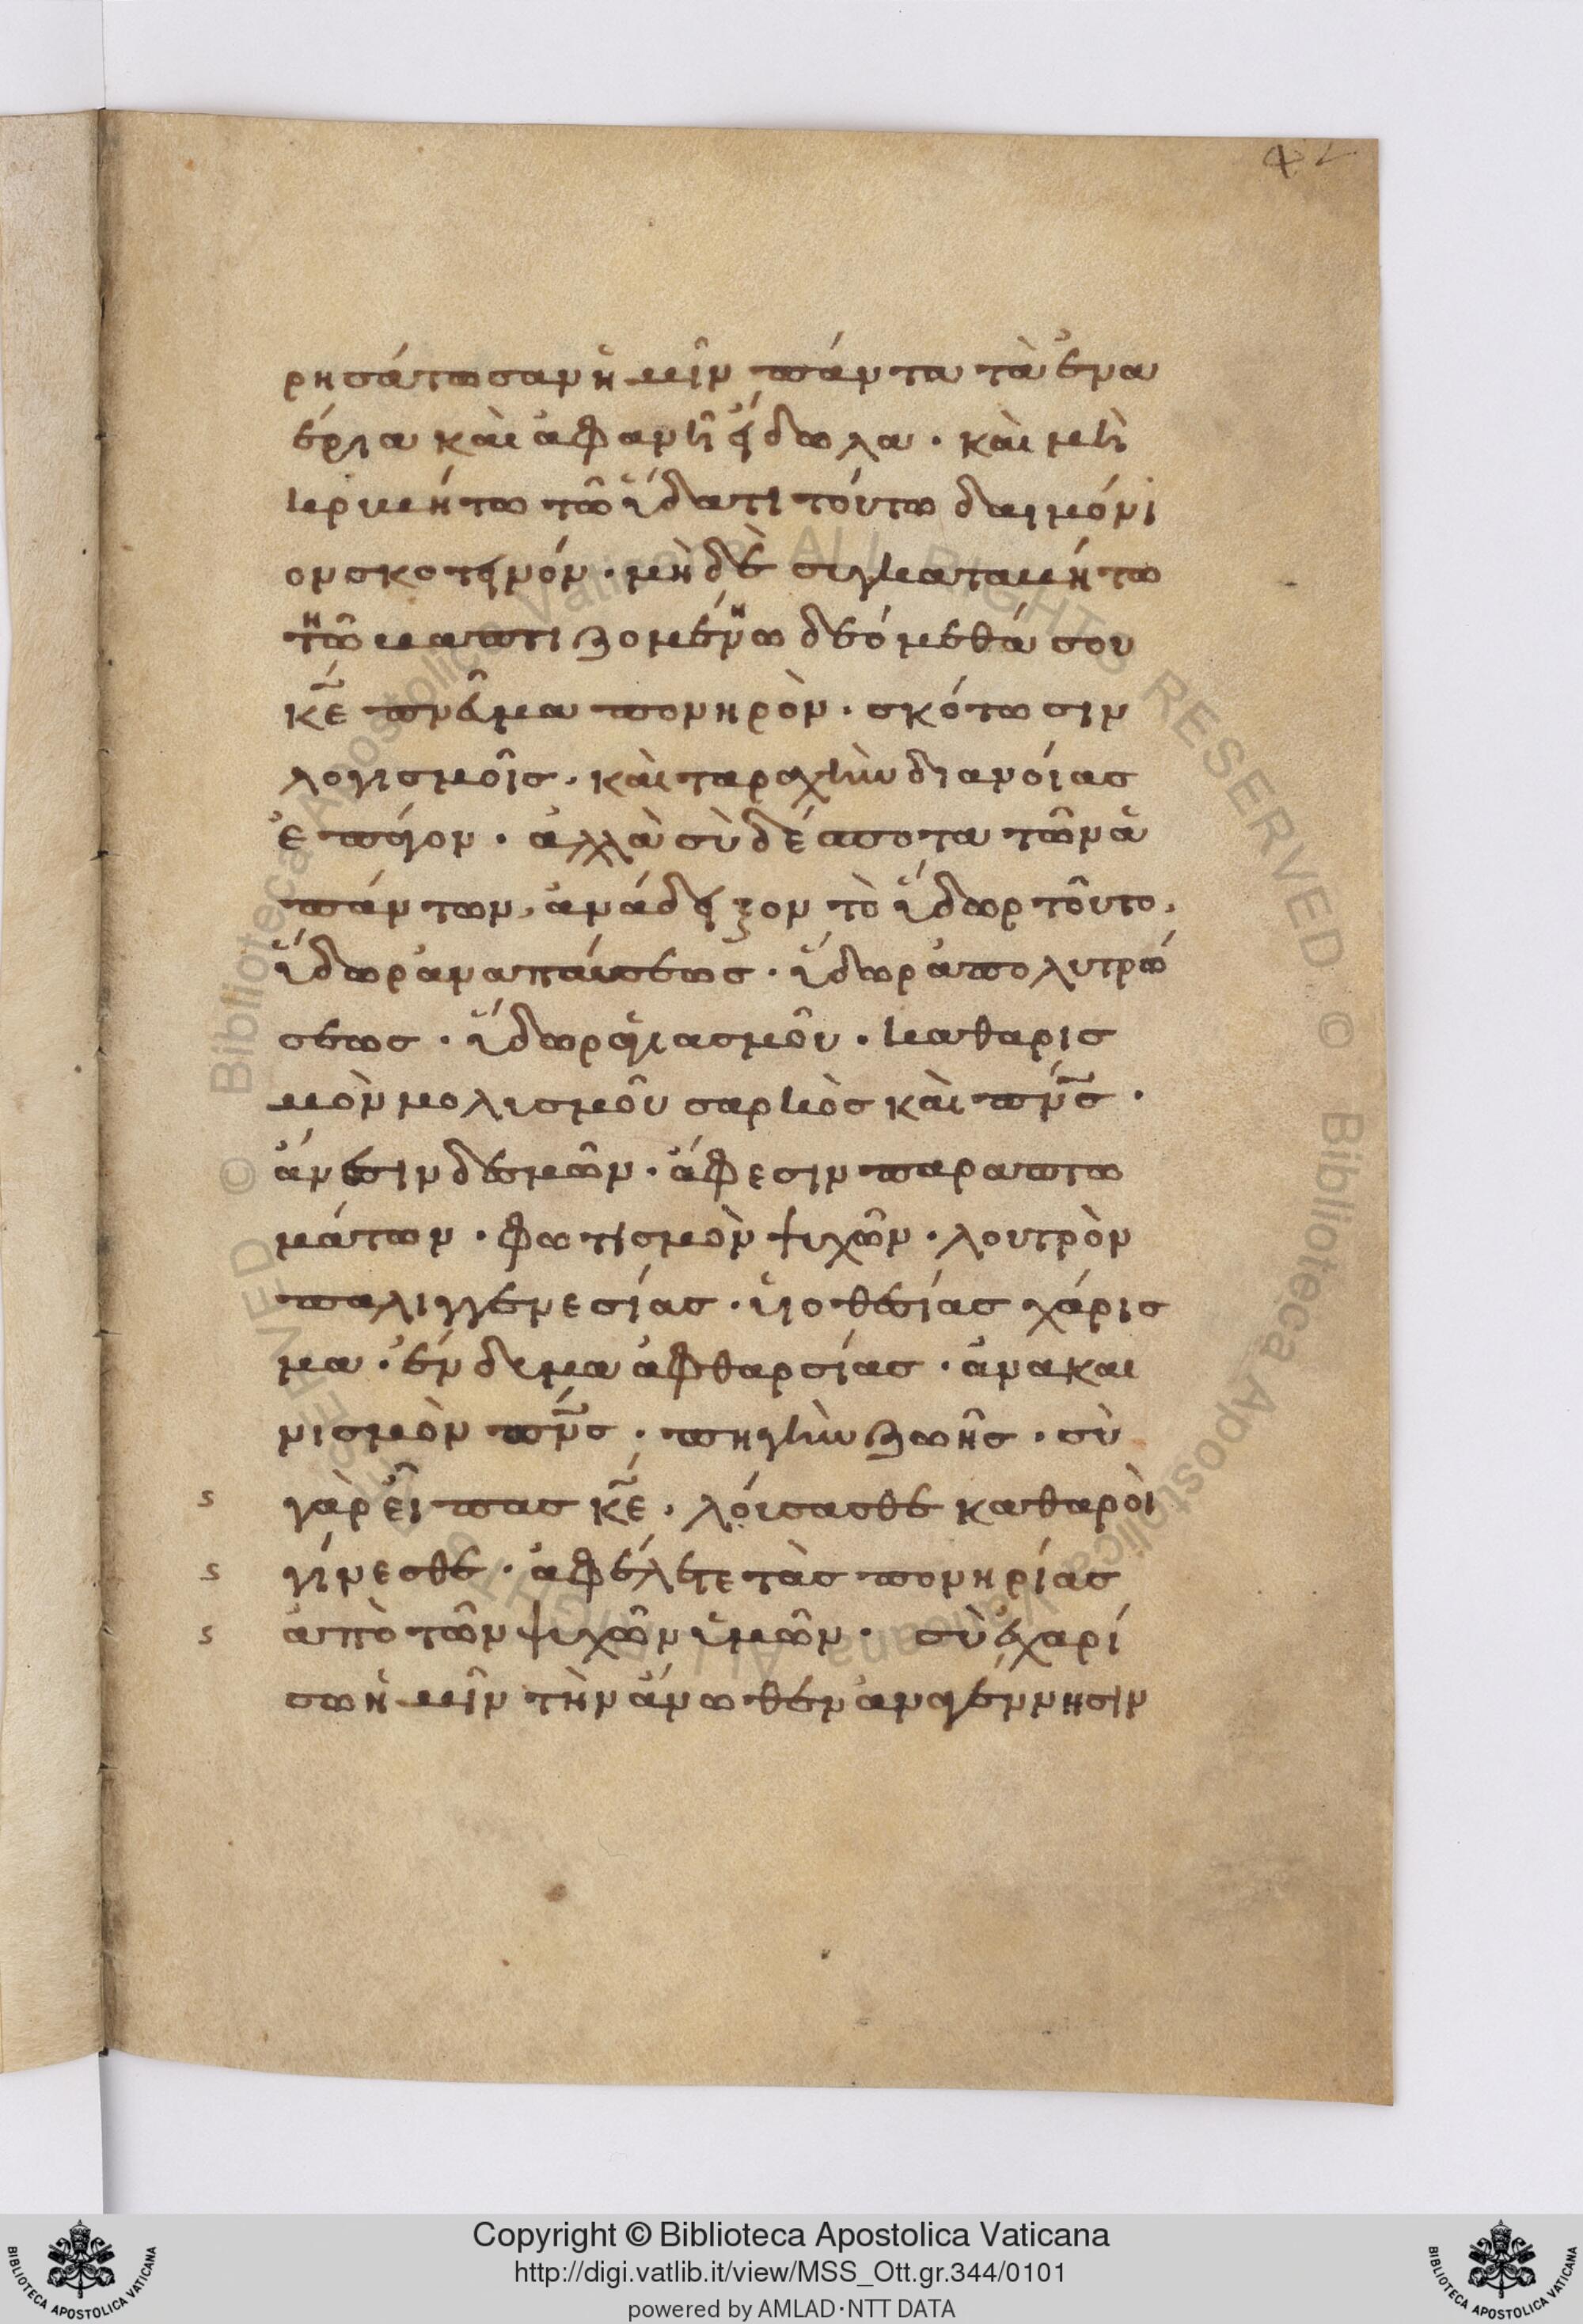 ρησάτωσαν ἡμῖν πάντα τὰ ἐνα
έρια καὶ ἀφανῆ εἴδωλα · καὶ μὴ
κρυβήτω τῶ ὕδατι τούτω δαιμόνι
ον σκοτεινόν · μὴ δὲ συγκαταβήτω
τῶ βαπτιζομένω δεόμεθά σου
κε πνεῦμα πονηρὸν · σκότωσιν
λογισμοῖς · καὶ ταραχὴν διανοίας
ἐπάγον · ἀλλὰ σὺ δέσποτα τῶν ἁ
πάντων, ἀνάδειξον τὸ ὕδωρ τοῦτο,
ὕδωρ ἀναπαύσεως · ὕδωρ ἀπολυτρώ
σεως · ὕδωρ ἁγιασμοῦ · καθαρισ
μὸν μολυσμοῦ σαρκὸς καὶ πνς ·
ἄνεσιν δεσμῶν · ἄφεσιν παραπτω
μάτων · φωτισμὸν ψυχῶν · λουτρὸν
παλιγγενεσίας · υἱοθεσίας χάρισ
μα · ἔνδυμα ἀφθαρσίας · ἀνακαι
νισμὸν πνς · πηγὴν ζωῆς · σὺ
γὰρ εἶπας κε, λούσασθε καθαροὶ
γίνεσθε · ἀφέλετε τὰς πονηρίας
ἀπὸ τῶν ψυχῶν ὑμῶν · σὺ ἐχαρί
σω ἡμῖν τὴν ἄνωθεν ἀναγέννησιν
Copyright © Biblioteca Apostolica Vaticana
http://digi.vatlib.it/view/MSS_Ott.gr.344/0101
powered by AMLAD·NTT DATA